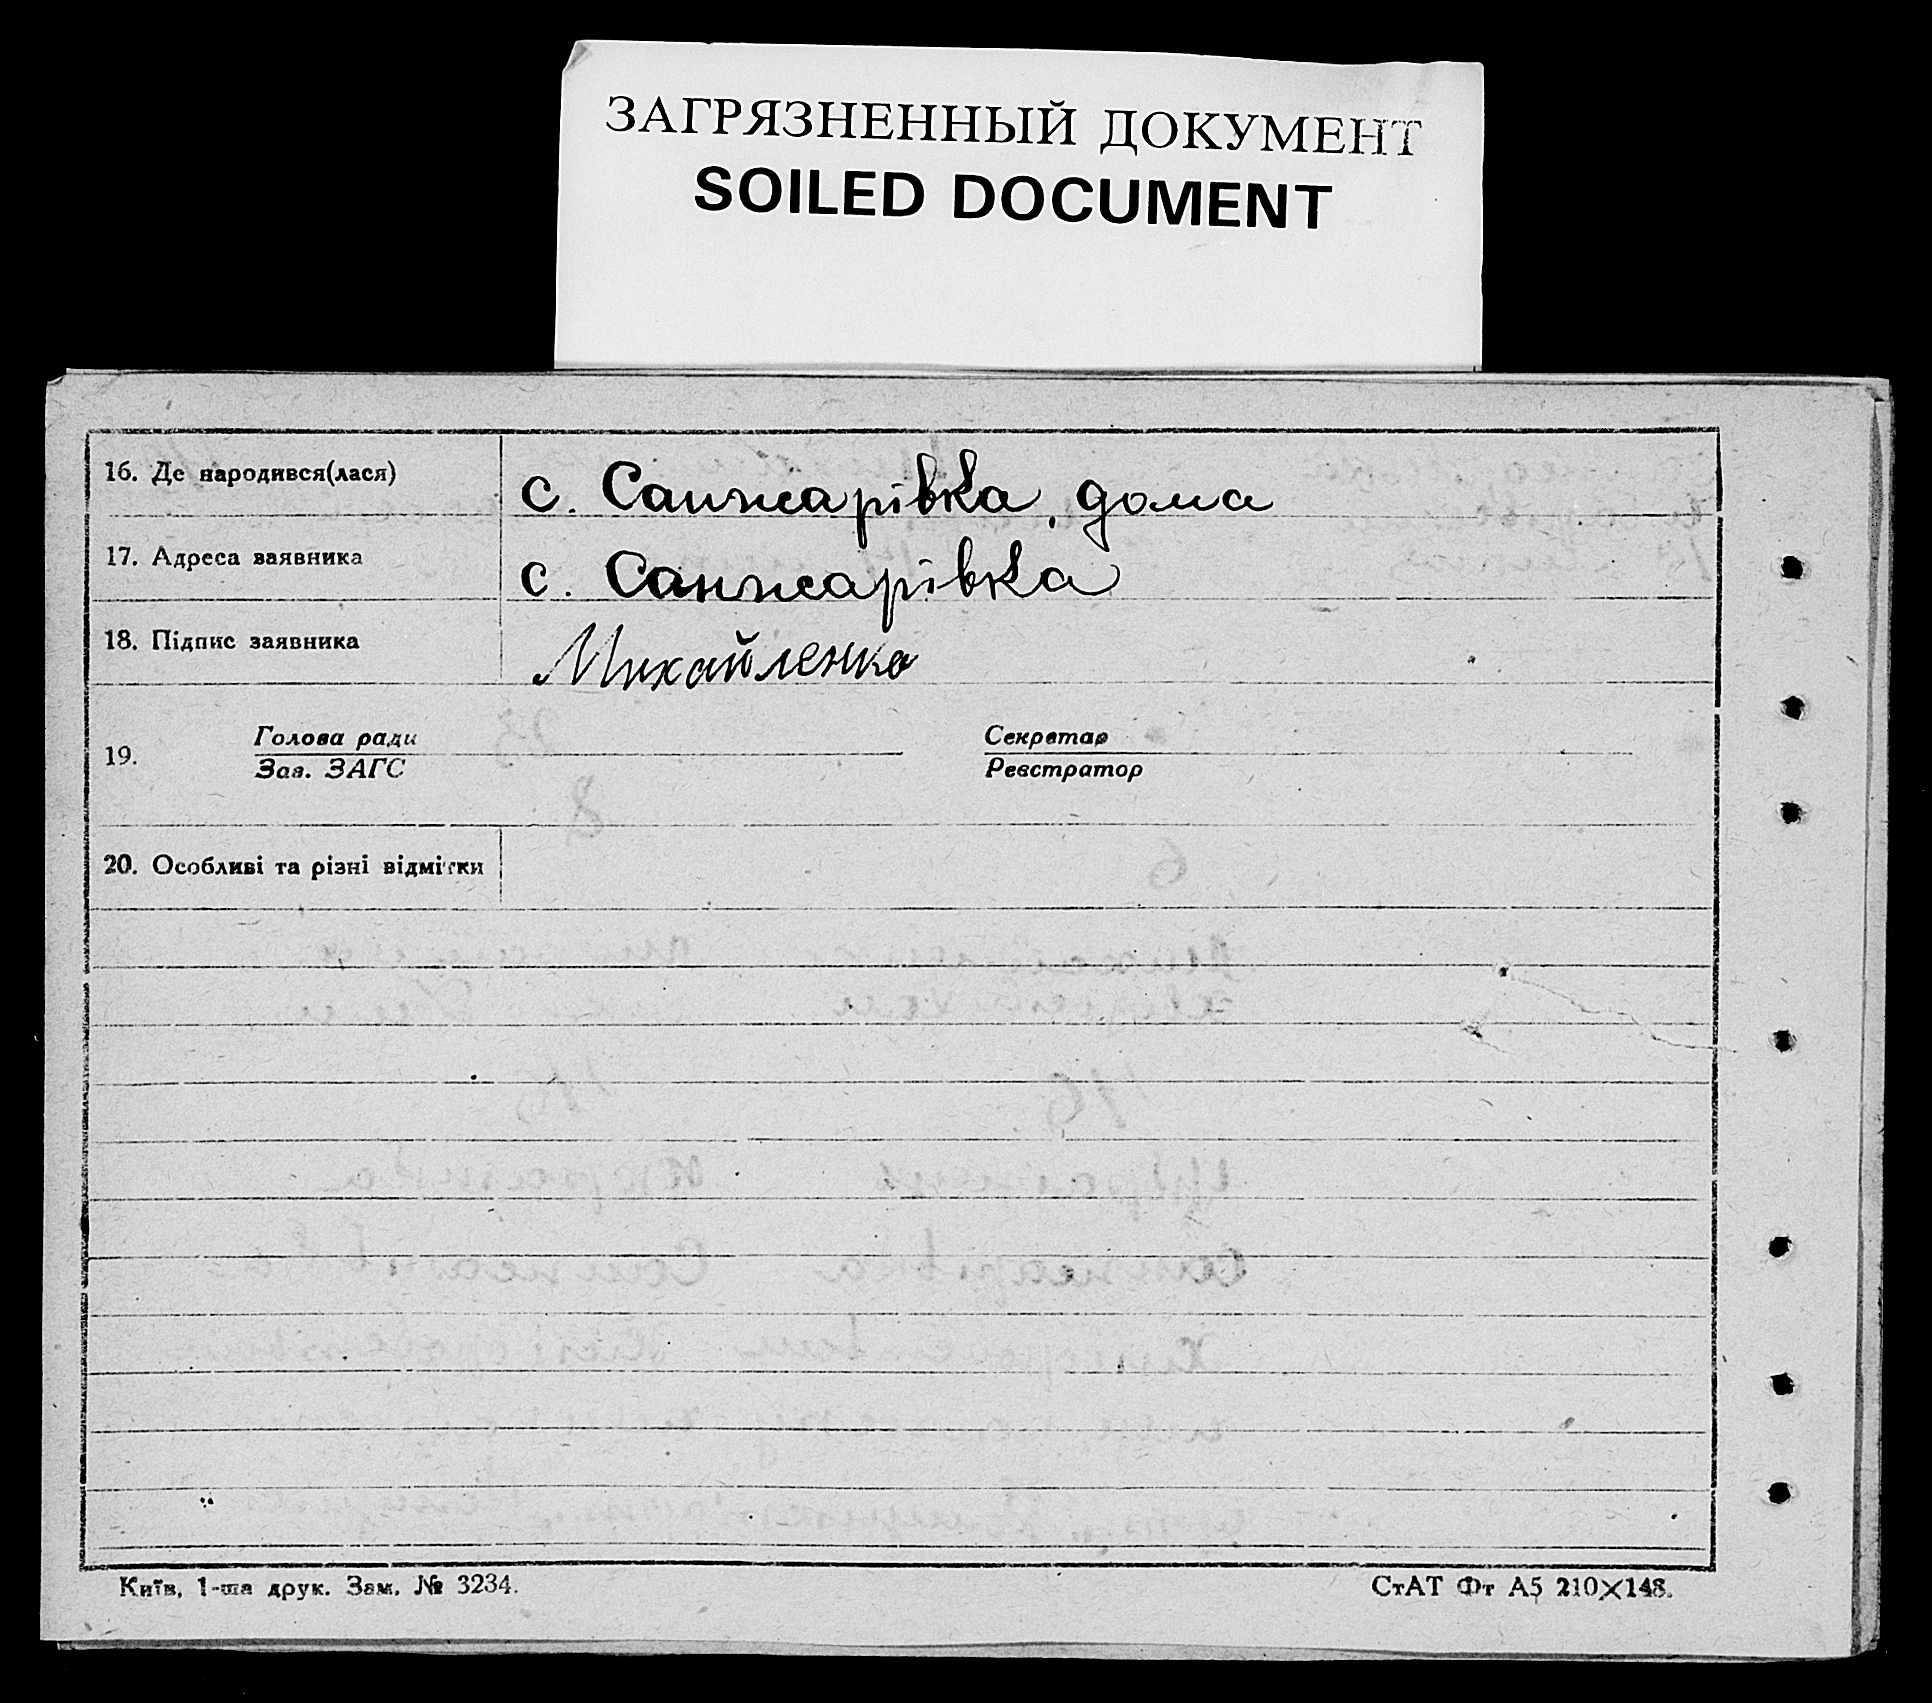 ЗАГРЯЗНЕННЫЙ ДОКУМЕНТ
SOILED DOCUMENT
16. Де народився(лася) с. Санжарівка, дома
17. Адреса заявника с. Санжарівка
18. Підпис заявника Михайленко
19. Голова ради Секретар
Зав. ЗАГС Реєстратор
20. Особливі та різні відмітки
Київ, 1-ша друк. Зам. № 3234. СтАТ Фт А5 210×148.